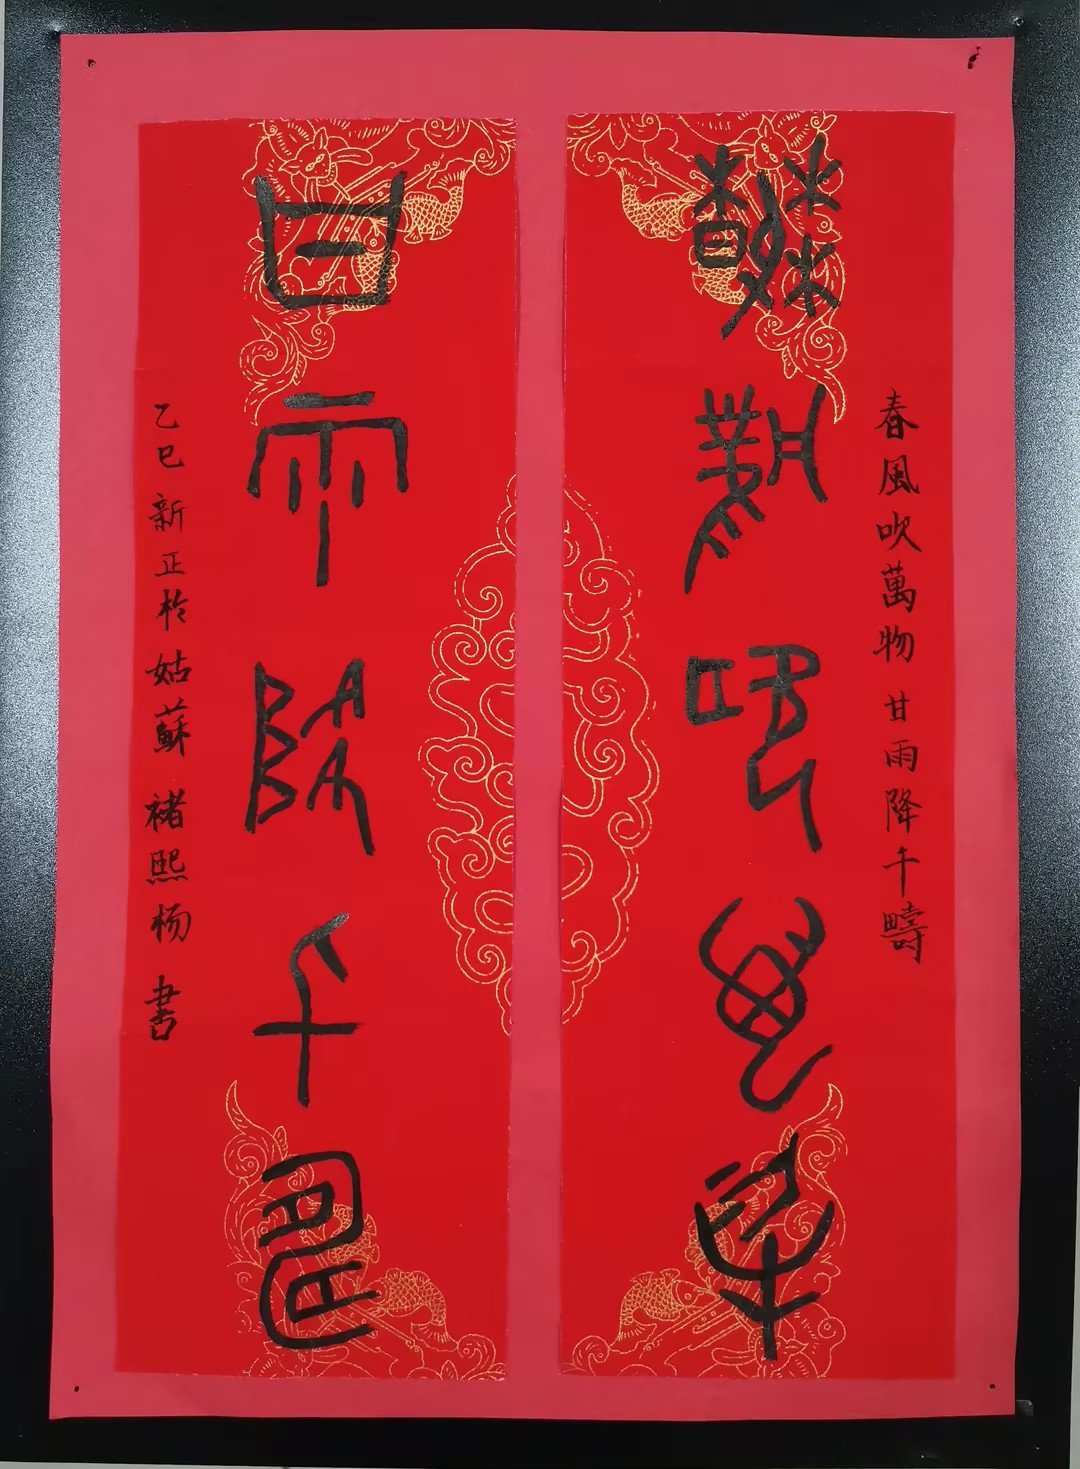 春風吹萬物 甘雨降千疇
春風吹萬物
甘雨降千疇
乙巳新正於姑蘇 褚熙杨 書